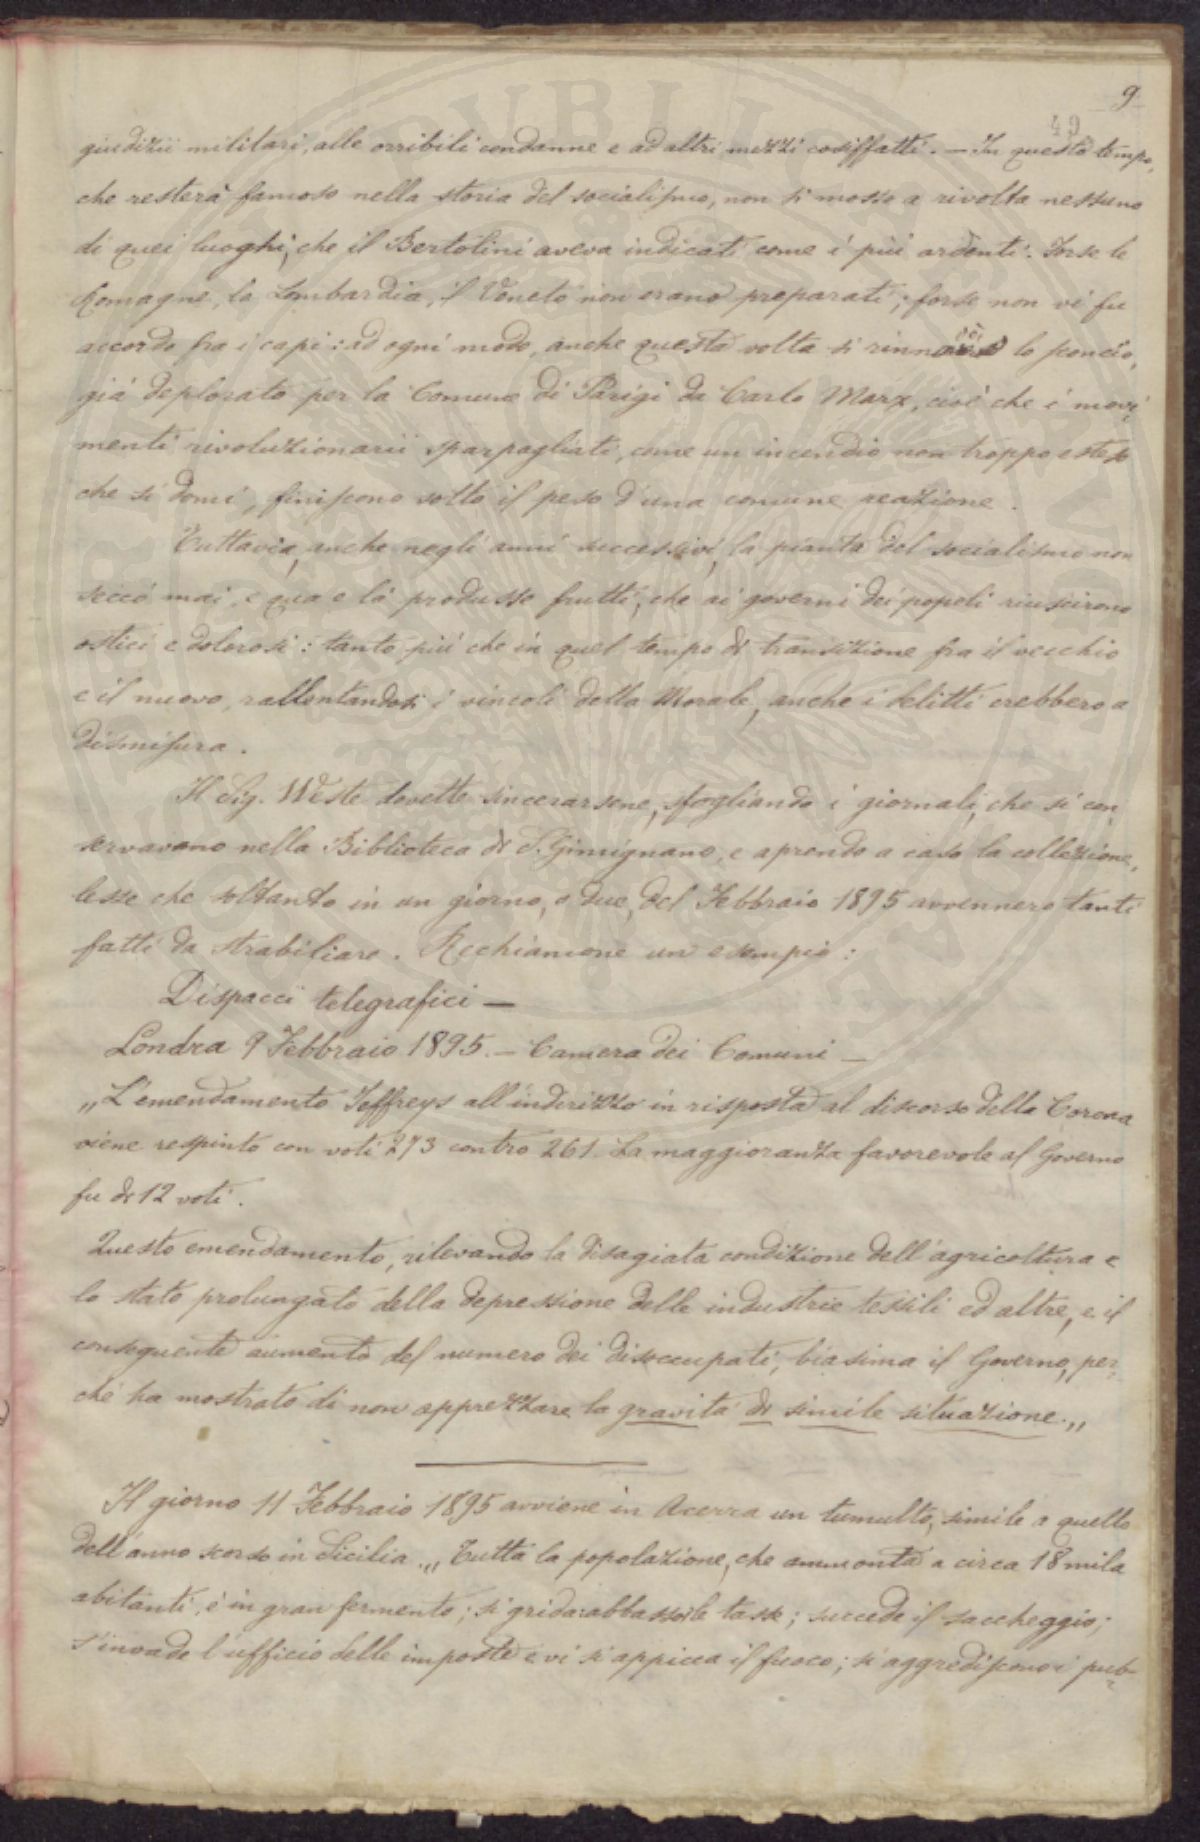 9
49
giudizii militari, alle orribili condanne e ad altri mezzi cosiffatti. — In questo tempo,
che resterà famoso nella storia del socialismo, non si mosse a rivolta nessuno
di quei luoghi, che il Bertolini aveva indicati come i più ardenti. Forse le
Romagne, la Lombardia, il Veneto non erano preparati; forse non vi fu
accordo fra i capi: ad ogni modo, anche questa volta si rinnovò lo sconcio,
già deplorato per la Comune di Parigi da Carlo Marx, cioè che i movi-
menti rivoluzionarii sparpagliati, come un incendio non troppo esteso
che si domi, finiscono sotto il peso d'una comune reazione.
Tuttavia, anche negli anni successivi, la pianta del socialismo non
seccò mai, e qua e là produsse frutti, che ai governi dei popoli riuscirono
ostici e dolorosi: tanto più che in quel tempo di transizione fra il vecchio
e il nuovo, rallentandosi i vincoli della Morale, anche i delitti crebbero a
dismisura.
Il Sig. Weste dovette sincerarsene, sfogliando i giornali, che si con-
servavano nella Biblioteca di S. Gimignano, e aprendo a caso la collezione,
lesse che soltanto in un giorno, o due, del Febbraio 1895 avvennero tanti
fatti da strabiliare. Rechiamone un esempio:
Dispacci telegrafici —
Londra 9 Febbraio 1895. — Camera dei Comuni —
„L'emendamento Jeffreys all'indirizzo in risposta al discorso della Corona
viene respinto con voti 273 contro 261. La maggioranza favorevole al Governo
fu di 12 voti.
Questo emendamento, rilevando la disagiata condizione dell'agricoltura e
lo stato prolungato della depressione delle industrie tessili ed altre, e il
conseguente aumento del numero dei disoccupati, biasima il Governo, per-
chè ha mostrato di non apprezzare la gravità di simile situazione.„
Il giorno 11 Febbraio 1895 avviene in Acerra un tumulto, simile a quello
dell'anno scorso in Sicilia. „Tutta la popolazione, che ammonta a circa 18 mila
abitanti, è in gran fermento; si grida: abbasso le tasse; succede il saccheggio;
s'invade l'ufficio delle imposte e vi si appicca il fuoco; si aggrediscono i pub-